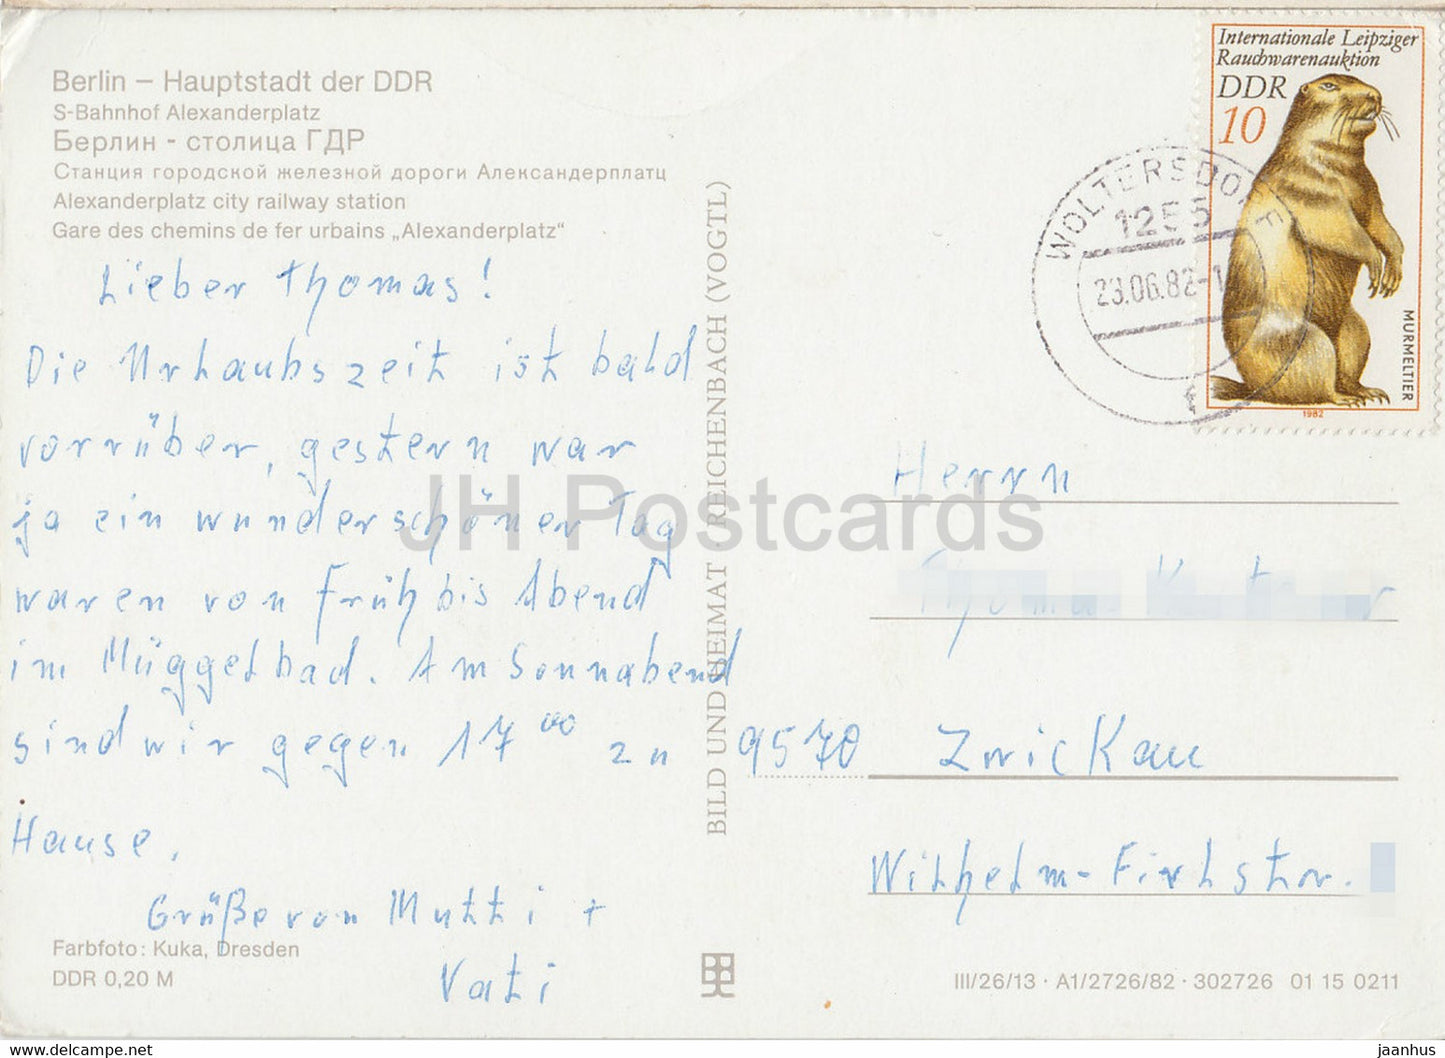 Berlin – Hauptstadt der DDR
S-Bahnhof Alexanderplatz
Берлин - столица ГДР
Станция городской железной дороги Александерплатц
Alexanderplatz city railway station
Gare des chemins de fer urbains „Alexanderplatz“
Lieber Thomas!
Die Urlaubszeit ist bald
vorrüber, gestern war
ja ein wunderschöner Tag
waren von Früh bis Abend
im Müggelbad. Am Sonnabend
sind wir gegen 17 00 zu
Hause.
Grüße von Mutti +
Vati
Farbfoto: Kuka, Dresden
DDR 0,20 M
BILD UND HEIMAT · REICHENBACH (VOGTL)
JH Postcards
Internationale Leipziger
Rauchwarenauktion
DDR
10
MURMELTIER
1982
WOLTERSDORF
1255
23.06.82-1
Herrn
Thomas
9570 Zwickau
Wilhelm-Firlstr.
III/26/13 · A1/2726/82 · 302726 01 15 0211
jaanhus @ delcampe.net